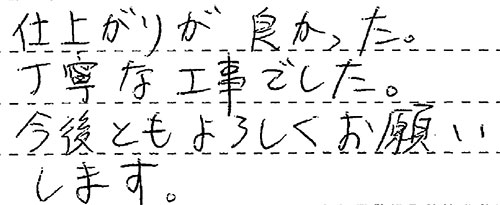 仕上がりが良かった。
丁寧な工事でした。
今後ともよろしくお願い
します。